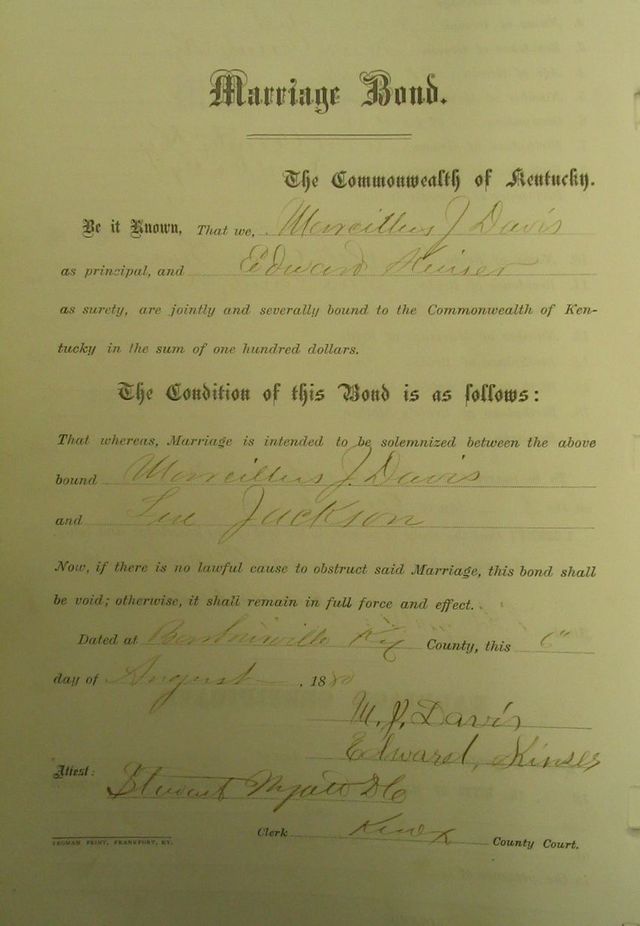 Marriage Bond.
The Commonwealth of Kentucky.
Be it Known, That we, Marcillus J Davis
as principal, and Edward Kinser
as surety, are jointly and severally bound to the Commonwealth of Ken-
tucky in the sum of one hundred dollars.
The Condition of this Bond is as follows:
That whereas, Marriage is intended to be solemnized between the above
bound Marcillus J. Davis
and Lue Jackson
Now, if there is no lawful cause to obstruct said Marriage, this bond shall
be void; otherwise, it shall remain in full force and effect.
Dated at Barbourville Ky County, this 6"
day of August, 188
M. J. Davis
Edward Kinser
Attest: Stewart DC
Clerk Knox County Court.
YEOMAN PRINT, FRANKFORT, KY.